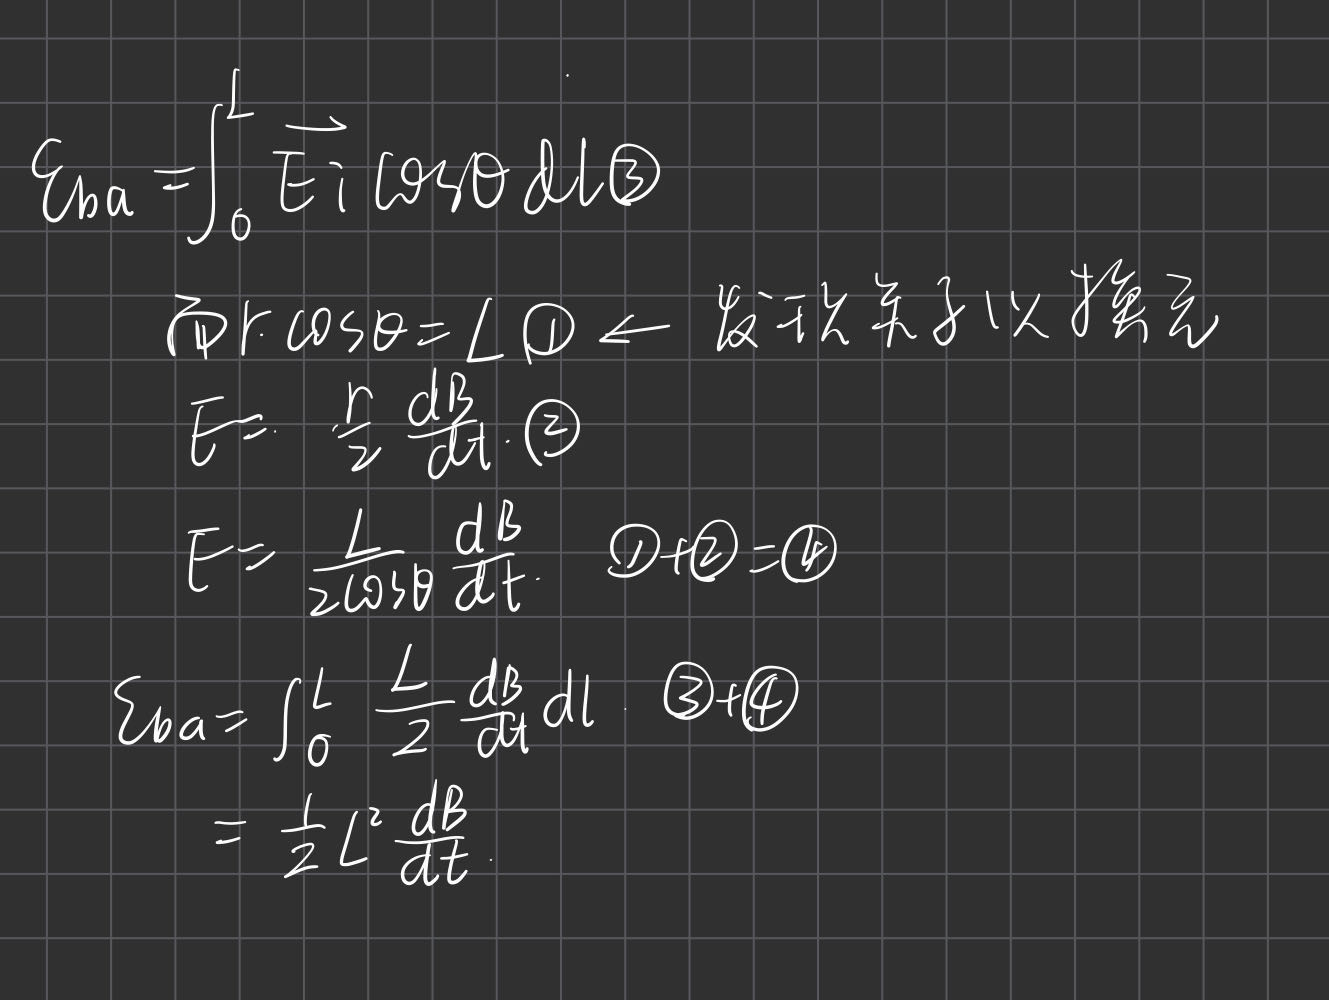 ε_ba = ∫_0^L \vec{Ei} cosθ dl ③
而 r·cosθ = L ① ← 发现关系可以换元
E = r/2 dB/dt. ②
E = L/(2cosθ) dB/dt. ①+②=④
ε_ba = ∫_0^L L/2 dB/dt dl. ③+④
= 1/2 L² dB/dt.